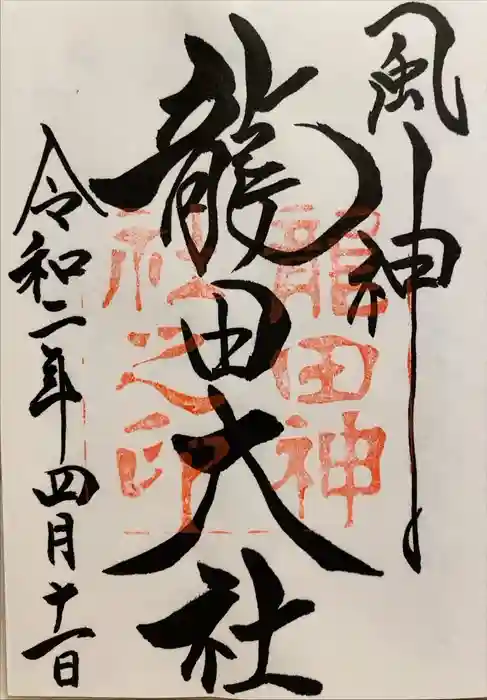 風神
龍田大社
令和二年四月十一日
龍田神
社之印